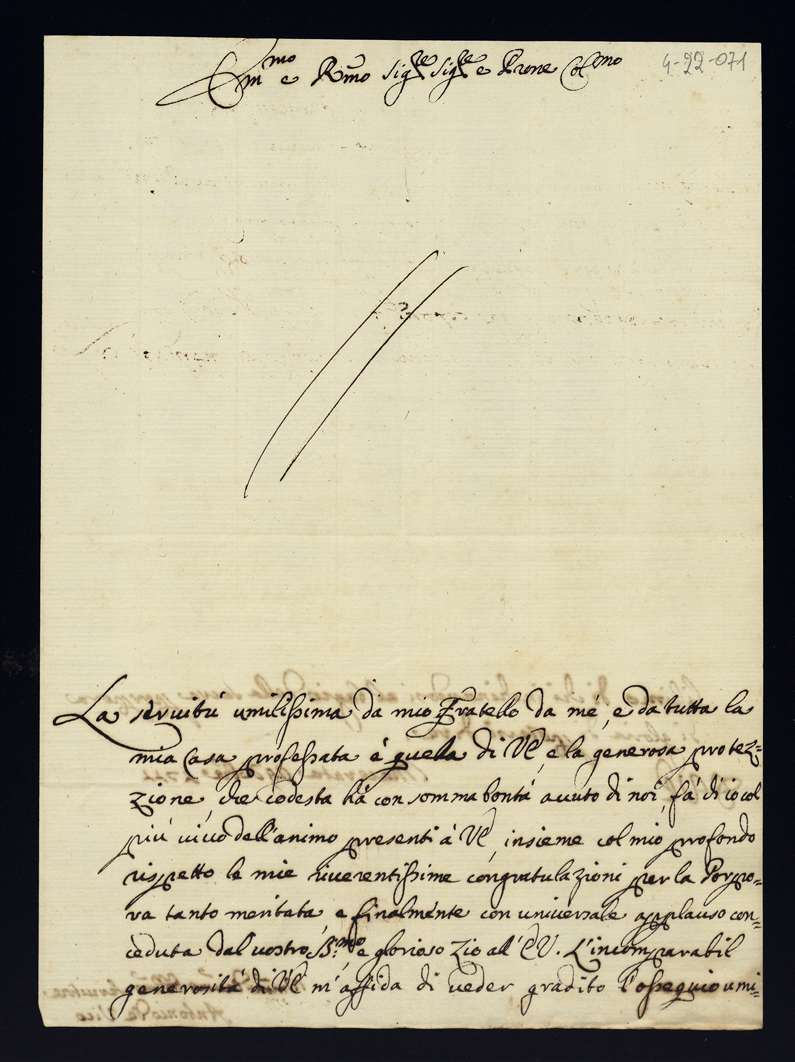 Em.mo e R.mo Sig.re Sig.re e Prone Col.mo
4-22-071
La servitù umilissima da mio Fratello da mé, e da tutta la
mia Casa professata à quella di VE, e la generosa protez=
zione, che codesta há con somma bontà avuto di noi, fà di io col
più vivo dell'animo presenti à VE, insieme col mio profondo
rispetto le mie riverentissime congratulazioni per la Porpo=
ra tanto meritata e finalmente con universale applauso con=
ceduta dal vostro S.mo e glorioso Zio all'EV. L'incomparabil
generosità di VE m'affida di veder gradito l'ossequio umi=
Antonio de Vico